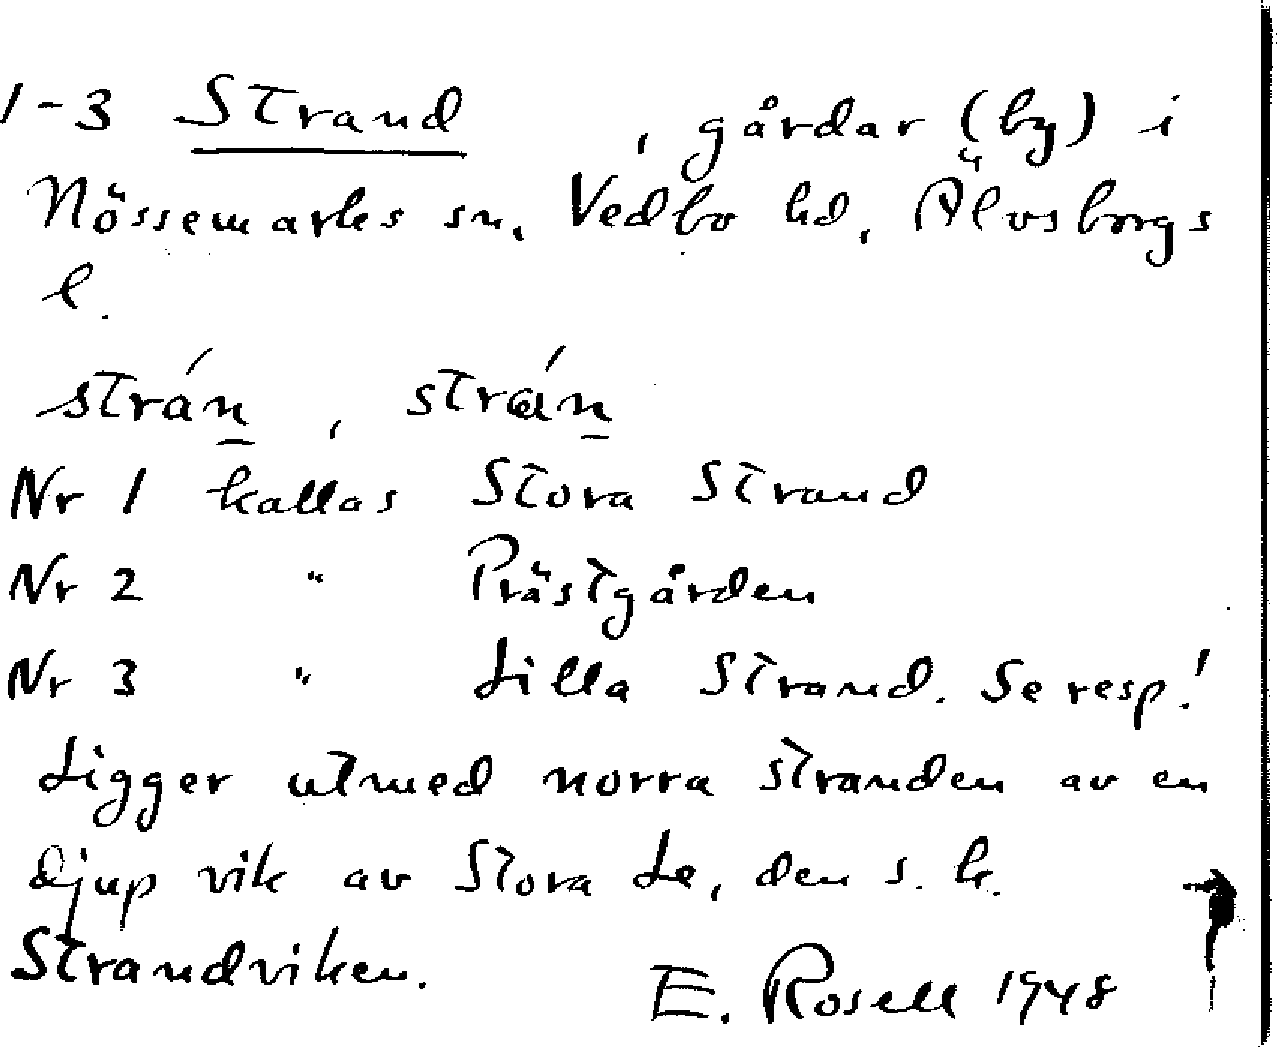 1-3 Strand , gårdar (by) i
Nössemarks sn, Vedbo hd, Älvsborgs
l.
strán , strán
Nr 1 kallas Stora Strand
Nr 2 " Prästgården
Nr 3 " Lilla Strand. Se resp.!
Ligger utmed norra stranden av en
djup vik av Stora Le, den s.k.
Strandviken.
E. Rosell 1948